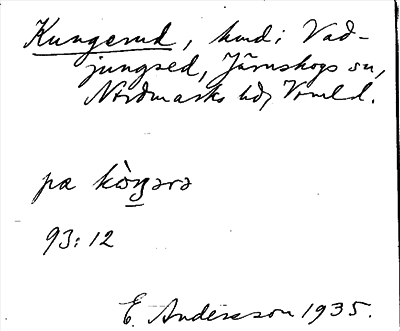 Kungerud, hmd i Vad-
jungsed, Järnskogs sn,
Nordmarks hd, Vrmld.
pa kòŋərə
93:12
E. Andersson 1935.